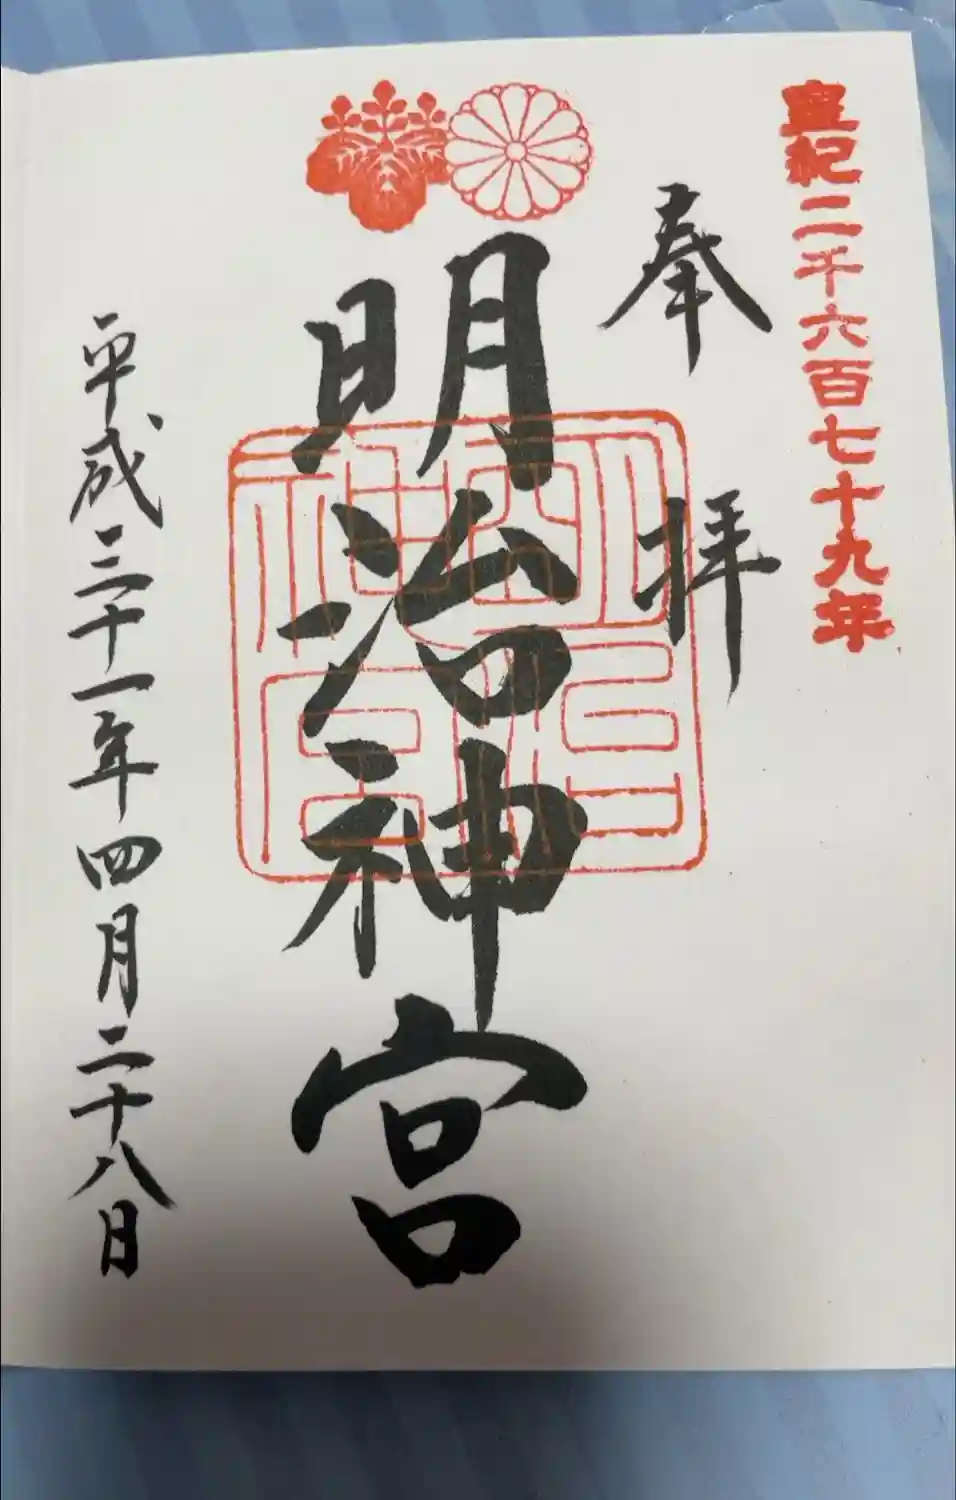 皇紀二千六百七十九年
奉拝
明治神宮
明治神宮
平成三十一年四月二十八日